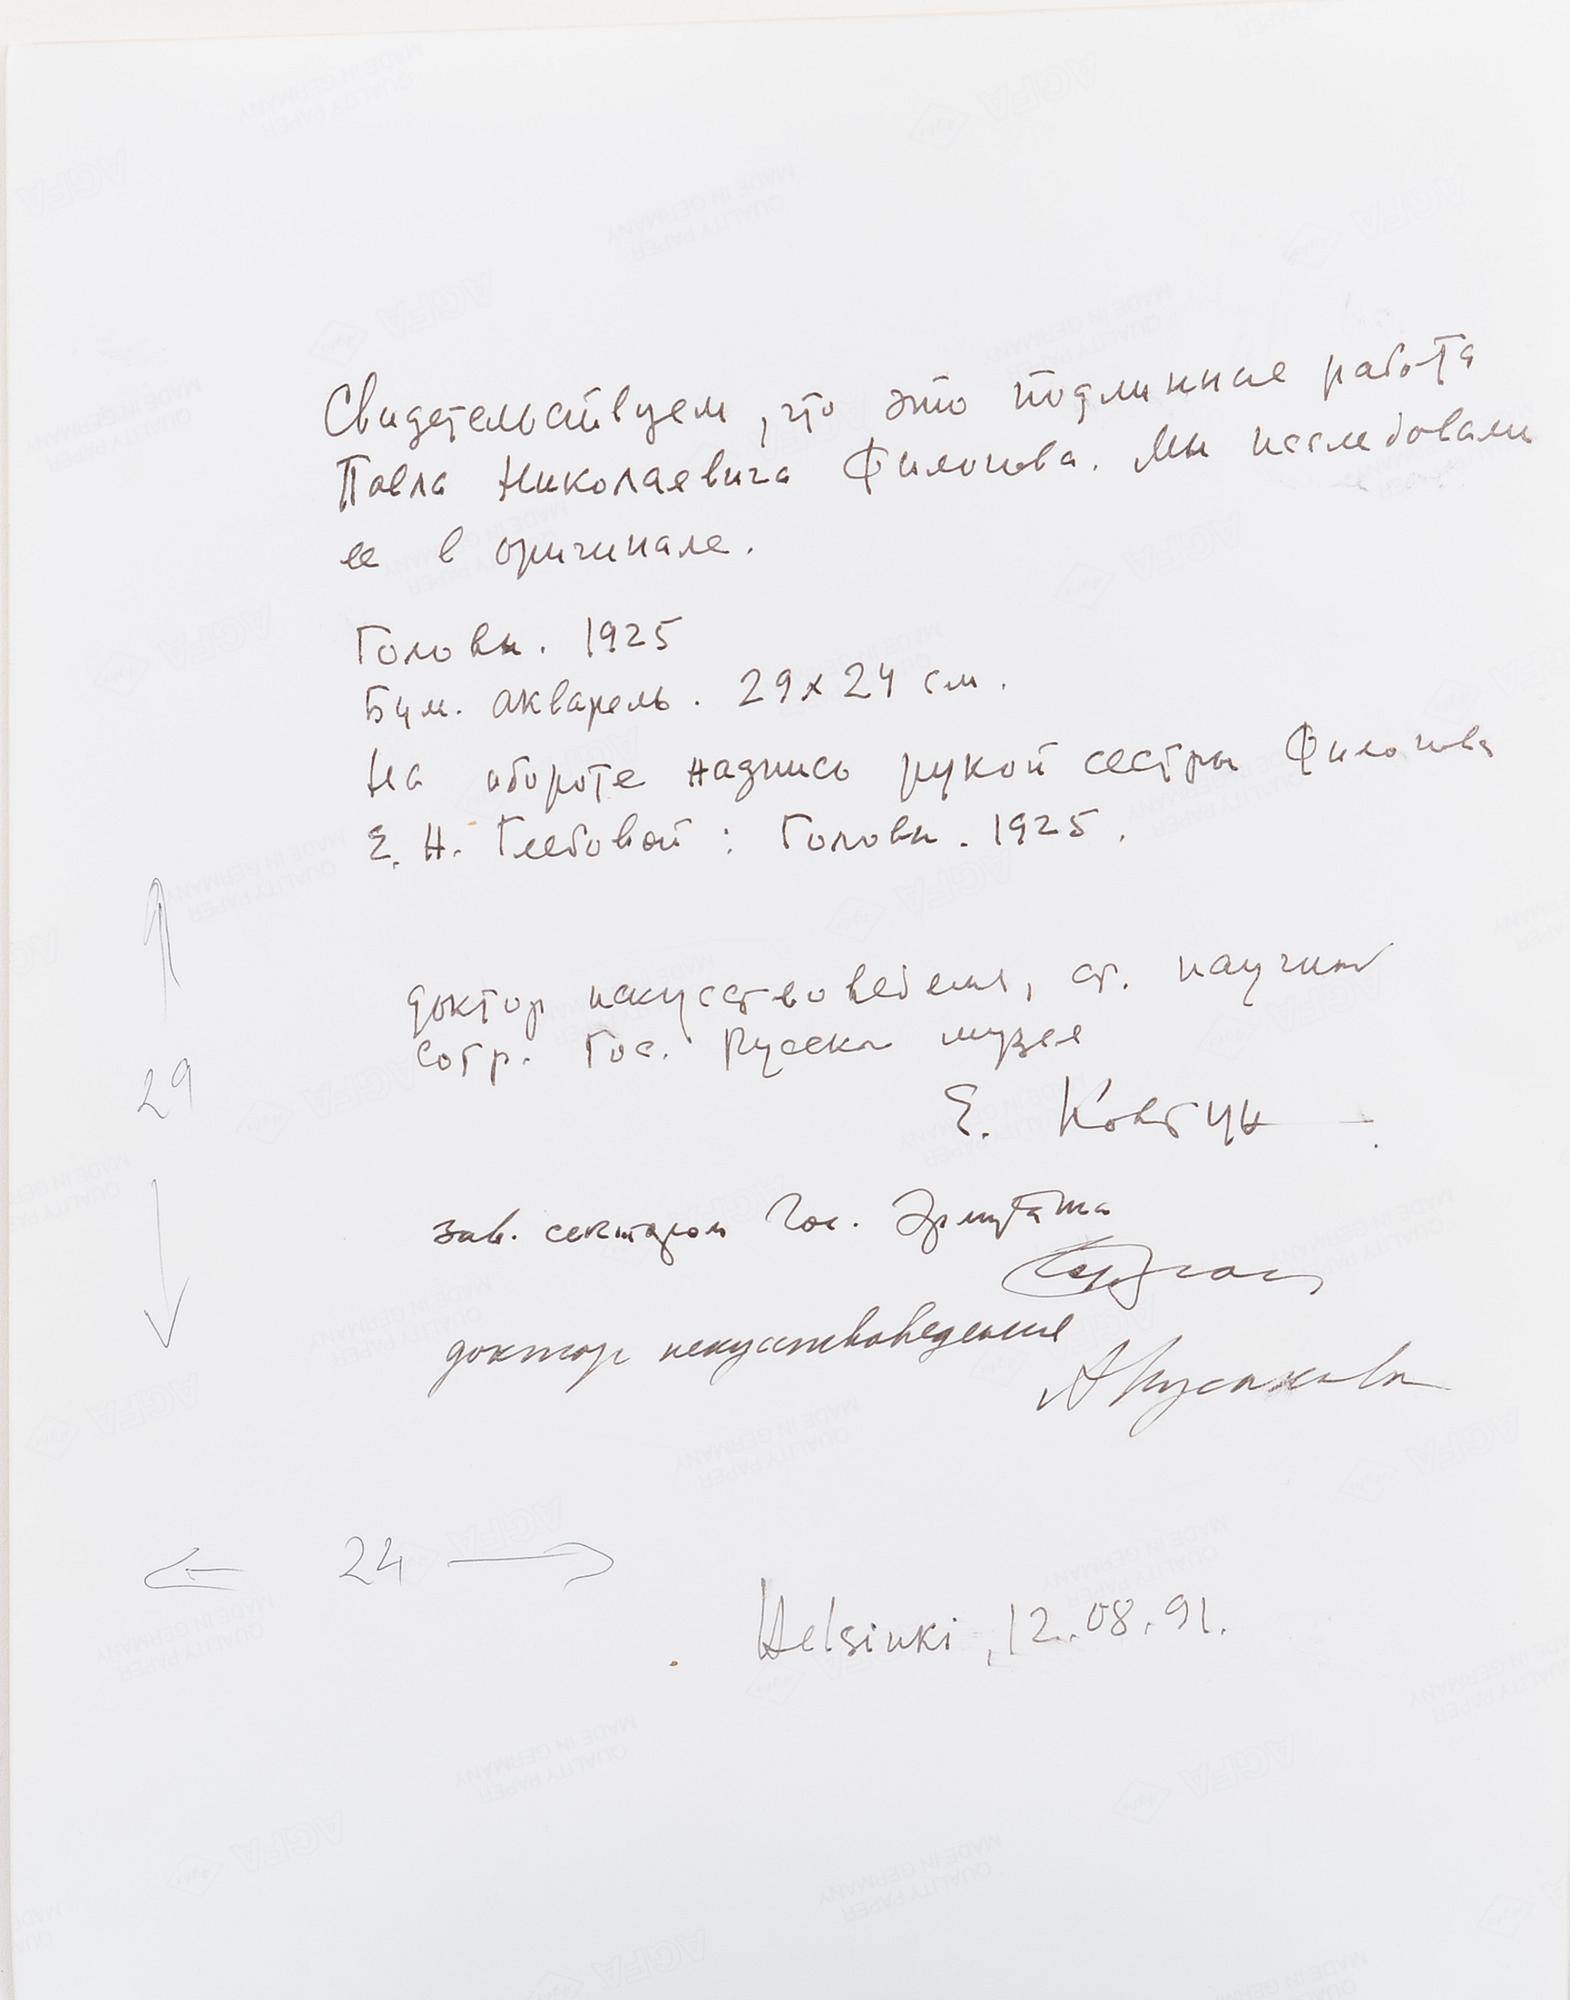 Свидетельствуем, что это подлинные работа
Павла Николаевича Филонова. Мы исследовали
ее в оригинале.
Головы. 1925
Бум. акварель. 29x24 см.
На обороте надпись рукой сестры Филонова
Е. Н. Глебовой: Головы. 1925.
доктор искусствоведения, ст. научн
сотр. Гос. Русск музея
Е. Ковтун
зав. сектором Гос. Эрмитажа
доктор искусствоведения
А Русакова
29
24
Helsinki, 12.08.91.
AGFA
QUALITY PAPER
MADE IN GERMANY